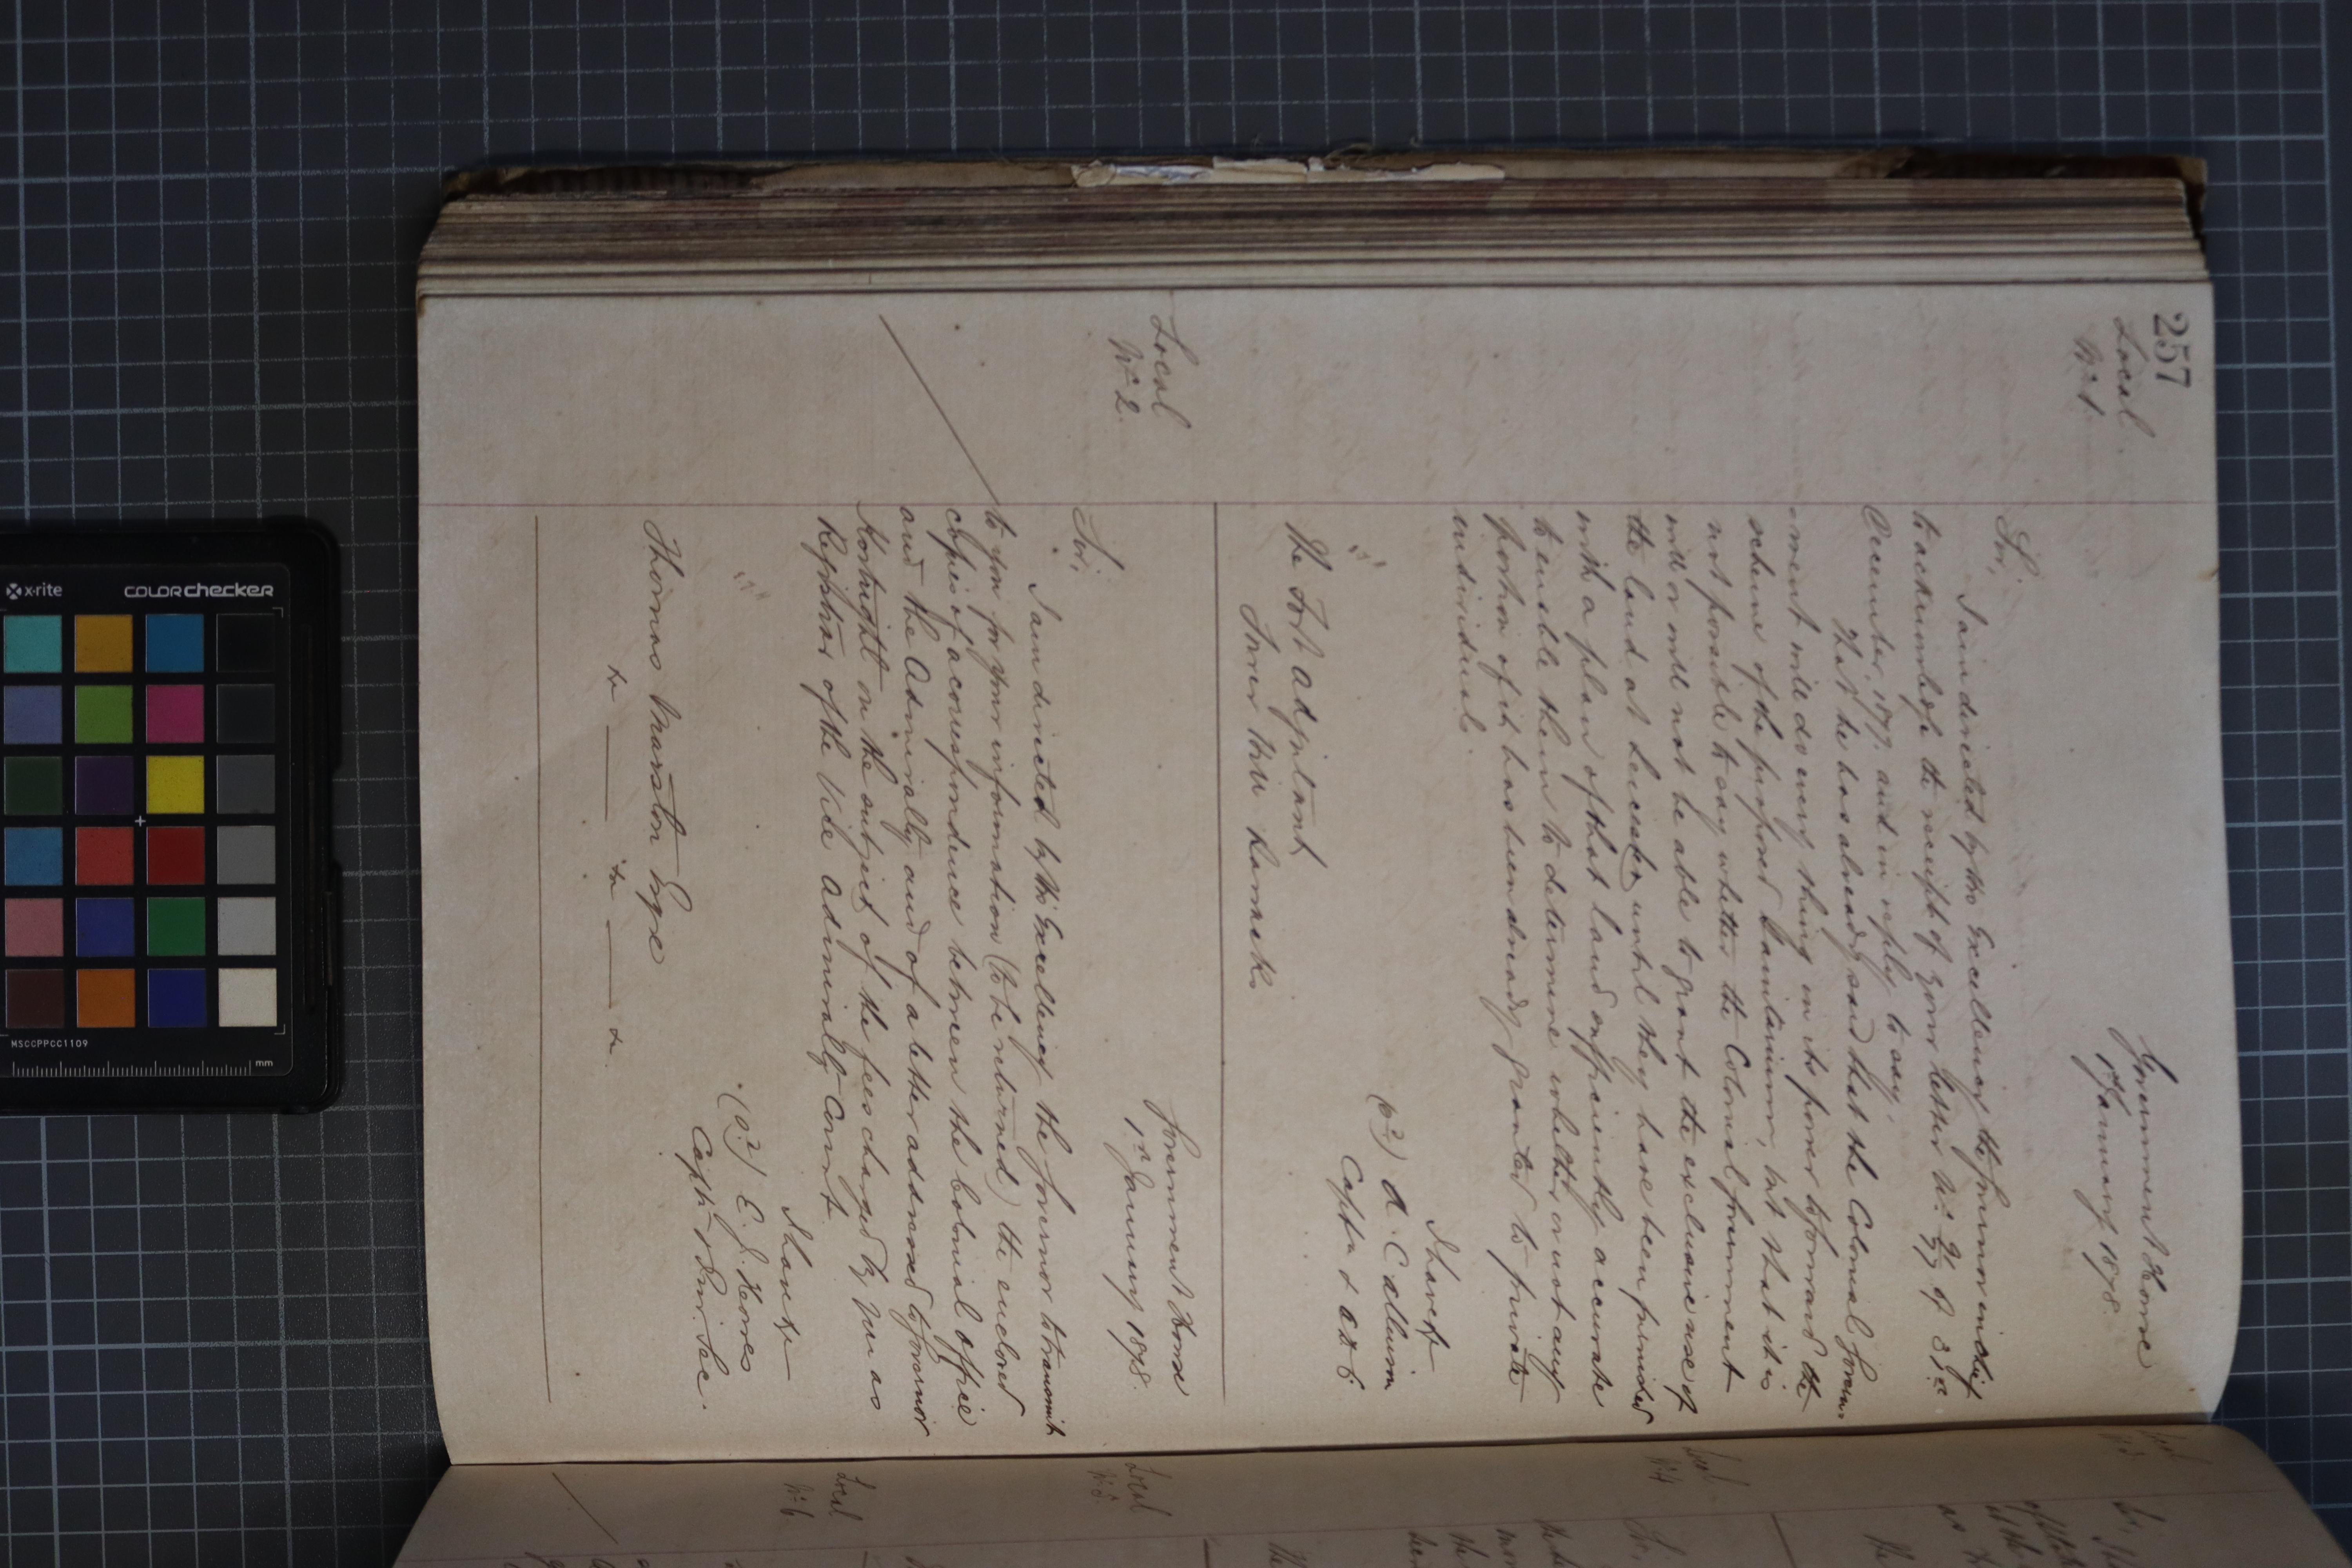 257
Local
No. 1
Government House
1st January 1878.
Sir,
I am directed by His Excellency the Governor in Chief
to acknowledge the receipt of your letter No. of 31st
December, 1877. and in reply to say,
That he has already said that the Colonial Govern-
-ment will do every thing in its power to forward the
scheme of the proposed Sanitarium, but that it is
not possible to say whether the Colonial Government
will or will not be able to grant the exclusive use of
the land at Leicester until they have been furnished
with a plan of that land sufficiently accurate
to enable them to determine whether or not any
portion of it has been already granted to private
individuals.
I have &c
(sd) A. Callum
Captn & ADC
The Fort Adjutant
Tower Hill Barracks
Local
No. 2.
Government House
1st January 1878.
Sir,
I am directed by His Excellency the Governor to transmit
to you for your information (to be returned) the enclosed
copies of a correspondence between the Colonial Office
and the Admiralty and of a letter addressed to Governor
Kortright on the subject of the fees charged by you as
Registrar of the Vice Admiralty Court.
I have &c
(sd) E. J. Horres
Captn & Priv. Sec.
Thomas Marston Esqre
&c — &c — &c
Local
Local
No. 4
Local
No. 5.
Local
No. 6
Sir,